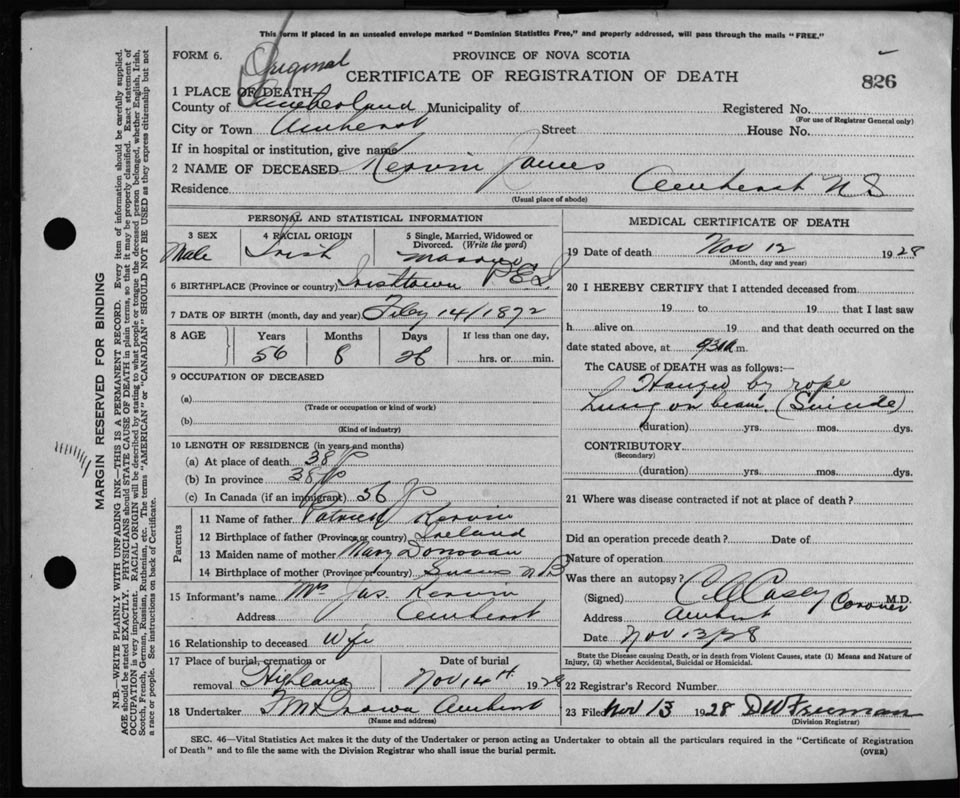 This form if placed in an unsealed envelope marked "Dominion Statistics Free," and properly addressed, will pass through the mails "FREE."
FORM 6.
Original
PROVINCE OF NOVA SCOTIA
CERTIFICATE OF REGISTRATION OF DEATH
826
1 PLACE OF DEATH
County of Cumberland Municipality of
Registered No.
(For use of Registrar General only)
City or Town Amherst Street House No.
If in hospital or institution, give name
2 NAME OF DECEASED Kervin James
Residence Amherst N S
(Usual place of abode)
PERSONAL AND STATISTICAL INFORMATION
3 SEX
Male
4 RACIAL ORIGIN
Irish
5 Single, Married, Widowed or Divorced. (Write the word)
Married
6 BIRTHPLACE (Province or country) Irishtown P.E.I.
7 DATE OF BIRTH (month, day and year) Feby 14/1872
8 AGE
Years Months Days If less than one day,
56 8 28 hrs. or min.
9 OCCUPATION OF DECEASED
(a)
(Trade or occupation or kind of work)
(b)
(Kind of industry)
10 LENGTH OF RESIDENCE (in years and months)
(a) At place of death 38
(b) In province 38
(c) In Canada (if an immigrant) 56
Parents
11 Name of father Patrick Kervin
12 Birthplace of father (Province or country) Ireland
13 Maiden name of mother Mary Donovan
14 Birthplace of mother (Province or country) Sussex N B
15 Informant's name Mrs Jas. Kervin
Address Amherst
16 Relationship to deceased Wife
17 Place of burial, cremation or removal Highland
Date of burial
Nov 14th 1928
18 Undertaker Amherst
(Name and address)
MEDICAL CERTIFICATE OF DEATH
19 Date of death Nov 12 1928
(Month, day and year)
20 I HEREBY CERTIFY that I attended deceased from
19 to 19 that I last saw
h alive on 19 and that death occurred on the
date stated above, at 930a m.
The CAUSE of DEATH was as follows:—
Hanged by rope
hung on beam. (Suicide)
(duration) yrs. mos. dys.
CONTRIBUTORY
(Secondary)
(duration) yrs. mos. dys.
21 Where was disease contracted if not at place of death?
Did an operation precede death? Date of
Nature of operation
Was there an autopsy?
(Signed) C A Casey Coroner M.D.
Address Amherst
Date Nov 13/28
State the Disease causing Death, or in death from Violent Causes, state (1) Means and Nature of Injury, (2) whether Accidental, Suicidal or Homicidal.
22 Registrar's Record Number
23 Filed Nov 13 1928 D W Freeman
(Division Registrar)
SEC. 46—Vital Statistics Act makes it the duty of the Undertaker or person acting as Undertaker to obtain all the particulars required in the "Certificate of Registration
of Death" and to file the same with the Division Registrar who shall issue the burial permit.
(OVER)
MARGIN RESERVED FOR BINDING
N.B.—WRITE PLAINLY WITH UNFADING INK—THIS IS A PERMANENT RECORD. Every item of information should be carefully supplied.
AGE should be stated EXACTLY. PHYSICIANS should STATE CAUSE OF DEATH in plain terms, so that it may be properly classified. Exact statement of
OCCUPATION is very important. RACIAL ORIGIN will be described by stating to what people or tongue the deceased person belonged, whether English, Irish,
Scotch, French, German, Russian, Ruthenian, etc. The terms "AMERICAN" or "CANADIAN" SHOULD NOT BE USED as they express citizenship but not
a race or people. See instructions on back of Certificate.